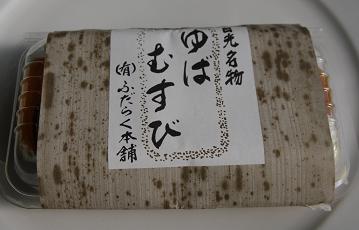 日光名物
ゆば
むすび
(有)ふたらく本舗